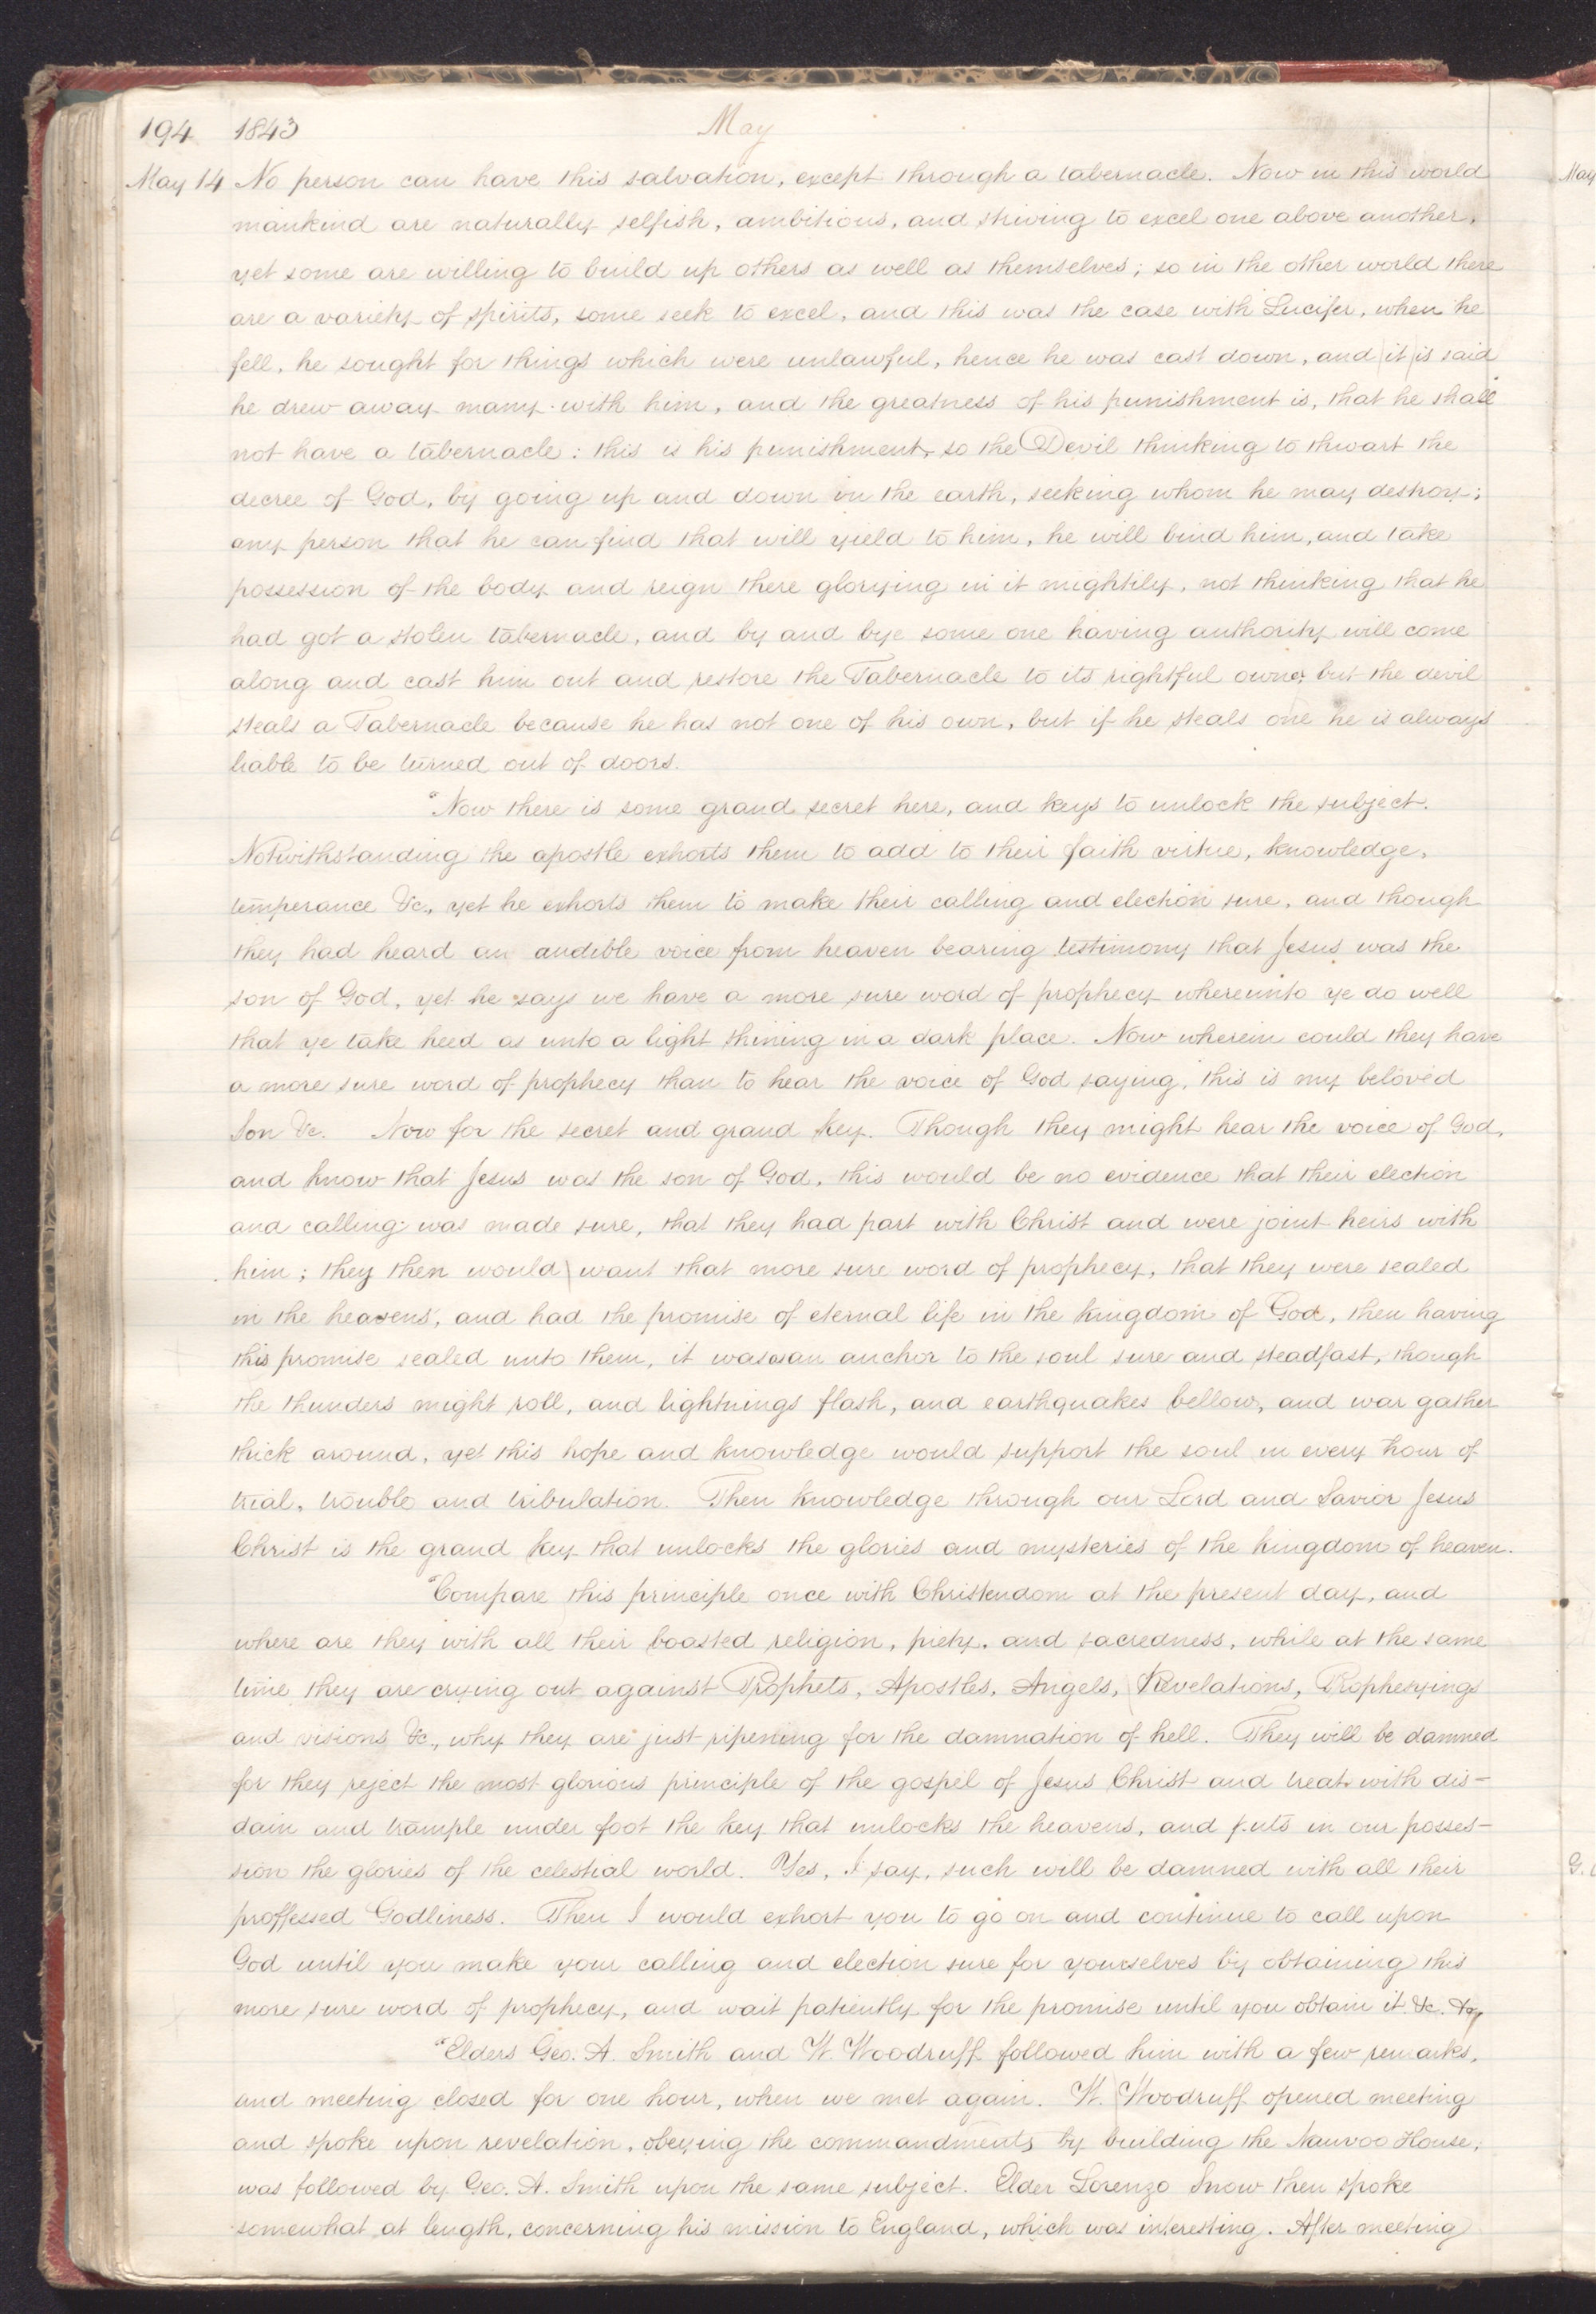 194 1843 May
May 14 No person can have this salvation, except through a tabernacle. Now in this world
mankind are naturally selfish, ambitious, and striving to excel one above another,
yet some are willing to build up others as well as themselves; so in the other world there
are a variety of spirits, some seek to excel, and this was the case with Lucifer, when he
fell, he sought for things which were unlawful, hence he was cast down, and it is said
he drew away many with him, and the greatness of his punishment is, that he shall
not have a tabernacle: this is his punishment, so the Devil thinking to thwart the
decree of God, by going up and down in the earth, seeking whom he may destroy;
any person that he can find that will yield to him, he will bind him, and take
possession of the body and reign there glorying in it mightily, not thinking that he
had got a stolen tabernacle, and by and bye some one having authority will come
along and cast him out and restore the Tabernacle to its rightful owner; but the devil
steals a Tabernacle because he has not one of his own, but if he steals one he is always
liable to be turned out of doors.
"Now there is some grand secret here, and keys to unlock the subject.
Notwithstanding the apostle exhorts them to add to their faith virtue, knowledge,
temperance &c., yet he exhorts them to make their calling and election sure, and though
they had heard an audible voice from heaven bearing testimony that Jesus was the
son of God, yet he says we have a more sure word of prophecy whereunto ye do well
that ye take heed as unto a light shining in a dark place. Now wherein could they have
a more sure word of prophecy than to hear the voice of God saying, this is my beloved
Son &c. Now for the secret and grand key. Though they might hear the voice of God,
and know that Jesus was the son of God, this would be no evidence that their election
and calling was made sure, that they had part with Christ and were joint heirs with
him; they then would want that more sure word of prophecy, that they were sealed
in the heavens, and had the promise of eternal life in the kingdom of God, then having
this promise sealed unto them, it was an anchor to the soul sure and steadfast, though
the thunders might roll, and lightnings flash, and earthquakes bellow, and war gather
thick around, yet this hope and knowledge would support the soul in every hour of
trial, trouble and tribulation. Then knowledge through our Lord and Savior Jesus
Christ is the grand key that unlocks the glories and mysteries of the kingdom of heaven.
"Compare this principle once with Christendom at the present day, and
where are they with all their boasted religion, piety, and sacredness, while at the same
time they are crying out against Prophets, Apostles, Angels, Revelations, Prophesyings
and visions &c., why they are just ripening for the damnation of hell. They will be damned
for they reject the most glorious principle of the gospel of Jesus Christ and treat with dis-
dain and trample under foot the key that unlocks the heavens, and puts in our posses-
sion the glories of the celestial world. Yes, I say, such will be damned with all their
proffessed Godliness. Then I would exhort you to go on and continue to call upon
God until you make your calling and election sure for yourselves by obtaining this
more sure word of prophecy, and wait patiently for the promise until you obtain it &c. &c.
"Elders Geo. A. Smith and W. Woodruff followed him with a few remarks,
and meeting closed for one hour, when we met again. W. Woodruff opened meeting
and spoke upon revelation, obeying the commandments by building the Nauvoo House;
was followed by Geo. A. Smith upon the same subject. Elder Lorenzo Snow then spoke
somewhat at length, concerning his mission to England, which was interesting. After meeting